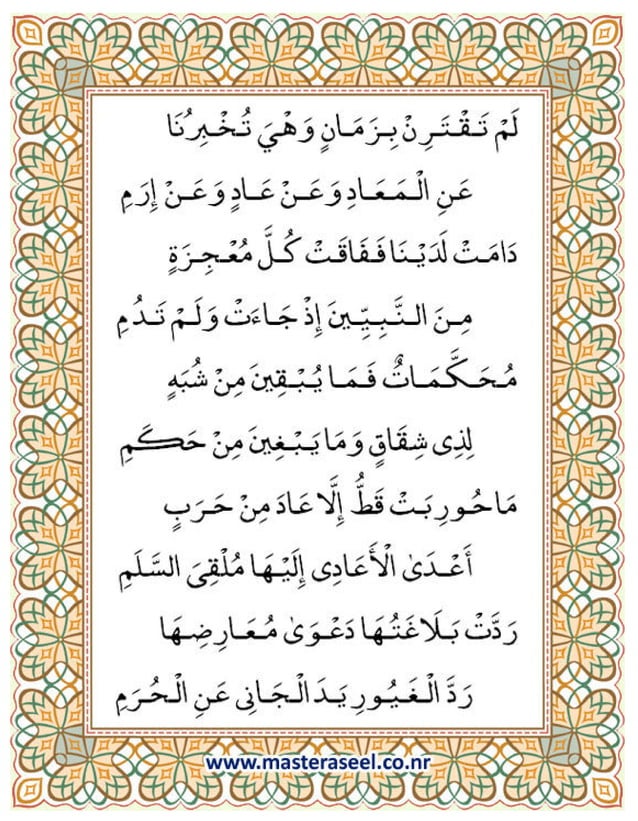 لَمْ تَقْتَرِنْ بِزَمَانٍ وَهْيَ تُخْبِرُنَا
عَنِ الْمَعَادِ وَعَنْ عَادٍ وَعَنْ إِرَمِ
دَامَتْ لَدَيْنَا فَفَاقَتْ كُلَّ مُعْجِزَةٍ
مِنَ النَّبِيِّينَ إِذْ جَاءَتْ وَلَمْ تَدُمِ
مُحَكَّمَاتٌ فَمَا يُبْقِينَ مِنْ شُبَهٍ
لِذِى شِقَاقٍ وَمَا يَبْغِينَ مِنْ حَكَمِ
مَا حُورِبَتْ قَطُّ إِلَّا عَادَ مِنْ حَرَبٍ
أَعْدَىٰ الْأَعَادِى إِلَيْهَا مُلْقِيَ السَّلَمِ
رَدَّتْ بَلَاغَتُهَا دَعْوَىٰ مُعَارِضِهَا
رَدَّ الْغَيُورِ يَدَ الْجَانِى عَنِ الْحُرَمِ
www.masteraseel.co.nr